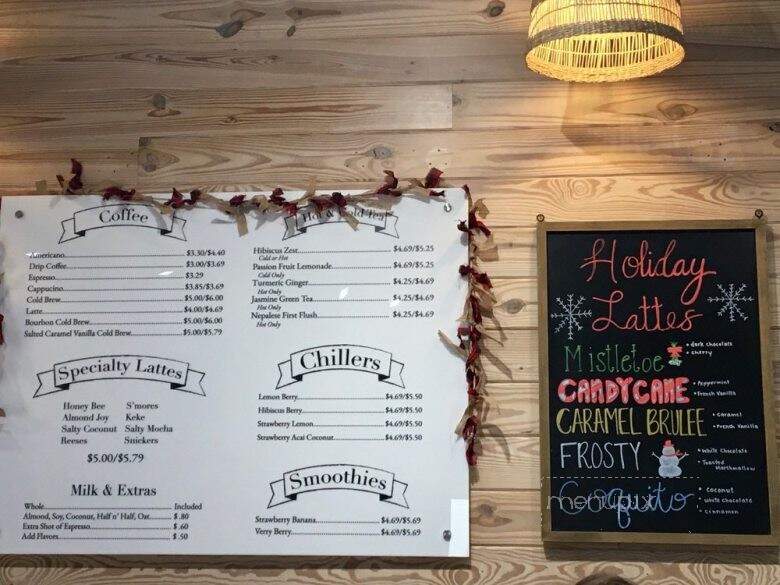 Coffee
Americano $3.30/$4.40
Drip Coffee $3.00/$3.69
Espresso $3.29
Cappucino $3.85/$3.69
Cold Brew $5.00/$6.00
Latte $4.00/$4.69
Bourbon Cold Brew $5.00/$6.00
Salted Caramel Vanilla Cold Brew $5.00/$5.79
Specialty Lattes
Honey Bee S'mores
Almond Joy Keke
Salty Coconut Salty Mocha
Reeses Snickers
$5.00/$5.79
Milk & Extras
Whole Included
Almond, Soy, Coconut, Half n' Half, Oat $ .80
Extra Shot of Espresso $ .60
Add Flavors $ .50
Hot & Cold Tea
Hibiscus Zest $4.69/$5.25
Cold or Hot
Passion Fruit Lemonade $4.69/$5.25
Cold Only
Turmeric Ginger $4.25/$4.69
Hot Only
Jasmine Green Tea $4.25/$4.69
Hot Only
Nepalese First Flush $4.25/$4.69
Hot Only
Chillers
Lemon Berry $4.69/$5.50
Hibiscus Berry $4.69/$5.50
Strawberry Lemon $4.69/$5.50
Strawberry Acai Coconut $4.69/$5.50
Smoothies
Strawberry Banana $4.69/$5.69
Verry Berry $4.69/$5.69
Holiday
Lattes
Mistletoe
• dark chocolate
• cherry
CANDYCANE
• Peppermint
• French Vanilla
CARAMEL BRULEE
• Caramel
• French Vanilla
FROSTY
• White Chocolate
• Toasted
Marshmallow
Coquito
• Coconut
• white chocolate
• cinnamon
menupix